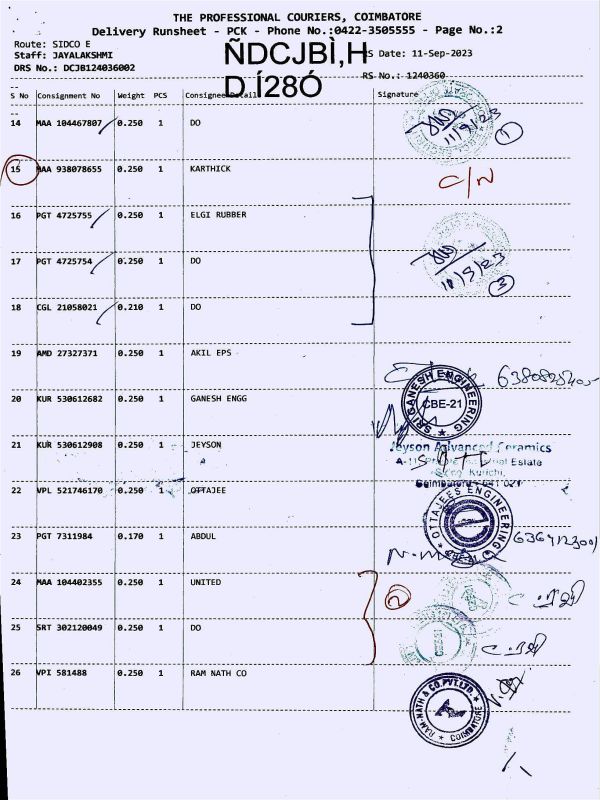 THE PROFESSIONAL COURIERS, COIMBATORE
Delivery Runsheet - PCK - Phone No.:0422-3505555 - Page No.:2
Route: SIDCO E
Staff: JAYALAKSHMI
DRS No.: DCJB124036002
ÑDCJBÌ,H
D Í28Ó
S Date: 11-Sep-2023
RS No.: 1240360
S No Consignment No Weight PCS Consignee Detail Signature
14 MAA 104467807 0.250 1 DO
11/9/23 1
15 MAA 938078655 0.250 1 KARTHICK C/N
16 PGT 4725755 0.250 1 ELGI RUBBER
17 PGT 4725754 0.250 1 DO
11/9/23 3
18 CGL 21058021 0.210 1 DO
19 AMD 27327371 0.250 1 AKIL EPS
20 KUR 530612682 0.250 1 GANESH ENGG
SRI GANESH ENGINEERING
CBE-21
21 KUR 530612908 0.250 1 JEYSON
Jeyson Advanced Ceramics
Estate
Coimbatore - 641 021
22 VPL 521746170 0.250 1 OTTAJEE
OTTAJEES ENGINEERING
23 PGT 7311984 0.170 1 ABDUL
24 MAA 104402355 0.250 1 UNITED 2
25 SRT 302120049 0.250 1 DO
26 VPI 581488 0.250 1 RAM NATH CO
RAM-NATH & CO.PVT.LTD.
COIMBATORE